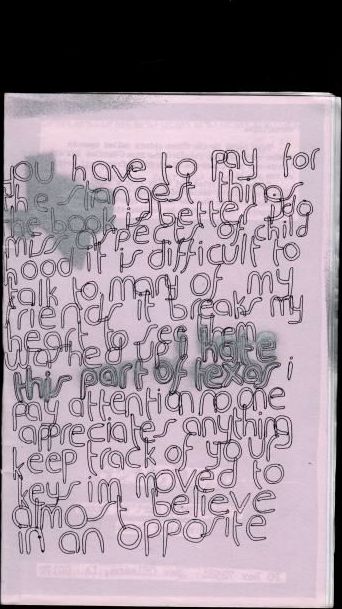 you have to pay for
the strangest things
the book is better i do
miss aspects of child
hood it is difficult to
talk to many of my
friends it breaks my
heart to see them
washed up i hate
this part of texas i
pay attention no one
appreciates anything
keep track of your
keys im moved to
almost believe
in an opposite